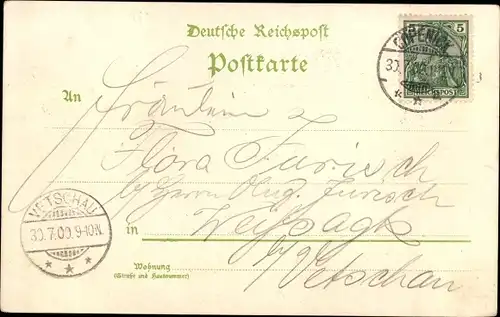 Deutsche Reichspost
Postkarte
5
REICHSPOST
CÖPENICK
30.7.00
An Fräulein
Flora Jurisch
b/Herrn Aug. Jurisch
in Weißagk
b/Vetschau
VETSCHAU
30.7.00.9-10N.
Wohnung
(Straße und Hausnummer)